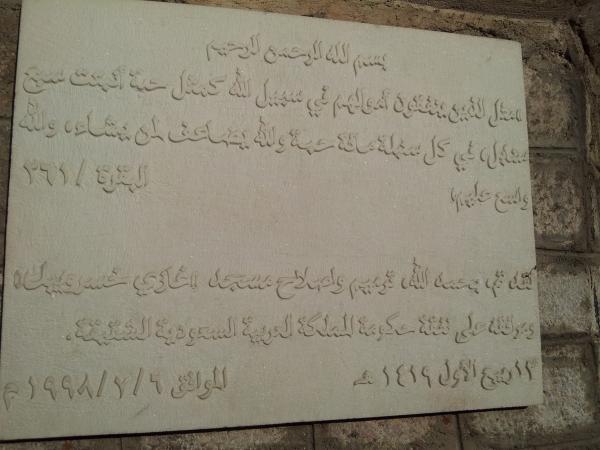 بسم الله الرحمن الرحيم
«مثل الذين ينفقون أموالهم في سبيل الله كمثل حبة أنبتت سبع
سنابل، في كل سنبلة مائة حبة والله يضاعف لمن يشاء، والله
واسع عليم» البقرة / ٢٦١
لقد تم، بحمد الله، ترميم واصلاح مسجد «غازي خسروبيك»
ومرافقه على نفقة حكومة المملكة العربية السعودية الشقيقة.
١٢ ربيع الأول ١٤١٩ هـ الموافق ٦ / ٧ / ١٩٩٨ م